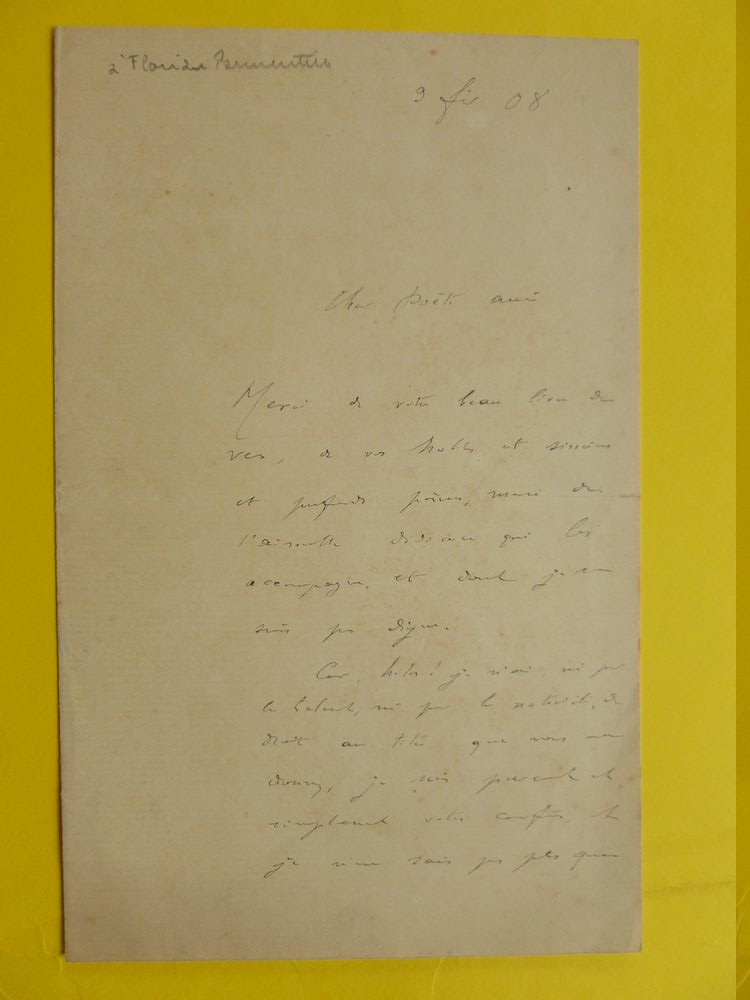 à Florian Parmentier
9 fév 08
Cher Poète ami
Merci de votre beau livre de
vers, de vos nobles et sincères
et profonds poèmes, merci de
l'aimable dédicace qui les
accompagne, et dont je ne
suis pas digne.
Car, hélas! je n'ai, ni par
le talent, ni par la notoriété, de
droit au titre que vous me
donnez, je suis purement et
simplement votre confrère, et
je n'en sais pas plus que